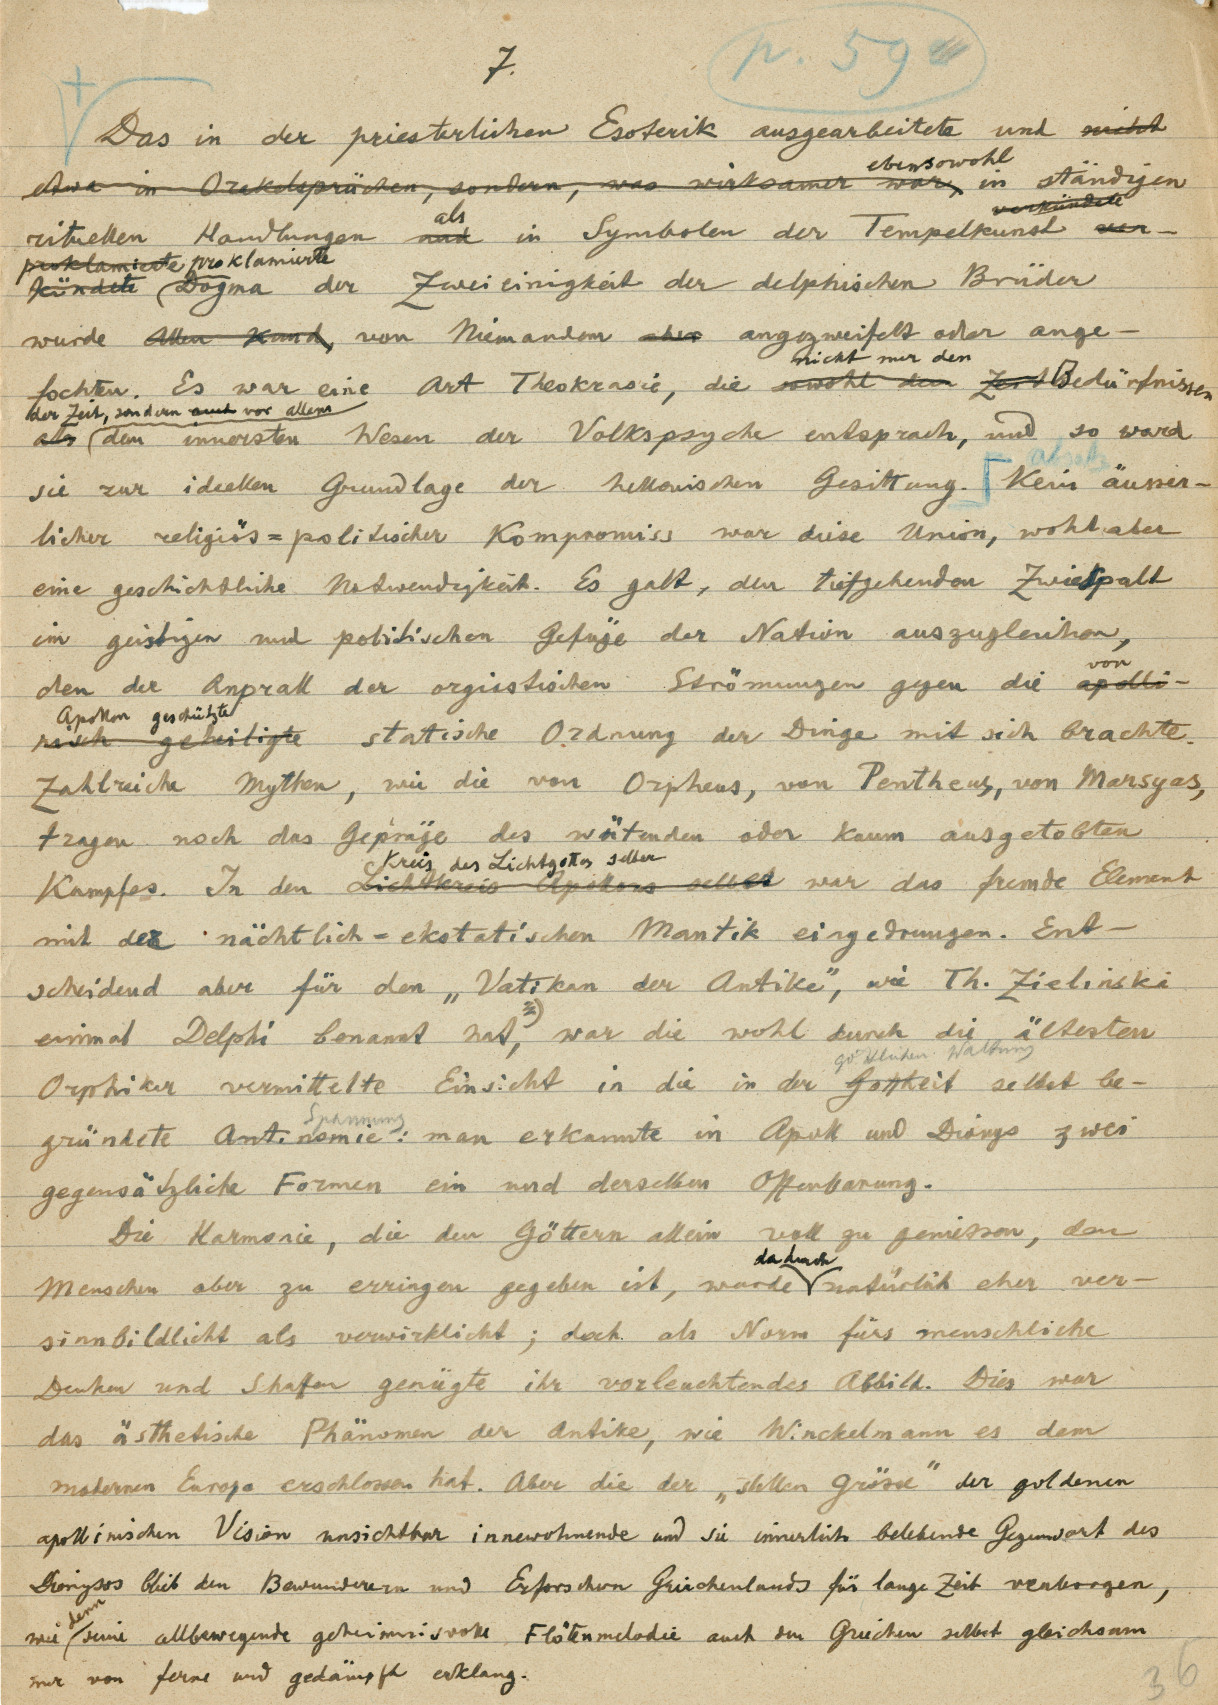 7.
p. 59
Das in der priesterlichen Esoterik ausgearbeitete und nicht
etwa in Orakelsprüchen, sondern, was wirksamer war, ebensowohl in ständigen
rituellen Handlungen und als in Symbolen der Tempelkunst ver- verkündete
kündete proklamierte proklamierte Dogma der Zweieinigkeit der delphischen Brüder
wurde von Niemandem aber angezweifelt oder ange-
fochten. Es war eine Art Theokrasie, die sowohl den nicht nur den Zeit Bedürfnissen
der Zeit, sondern auch vor allem
als dem innersten Wesen der Volkspsyche entsprach, und so ward
sie zur ideellen Grundlage der hellenischen Gesittung. Absatz Kein äusser-
licher religiös=politischer Kompromiss war diese Union, wohl aber
eine geschichtliche Notwendigkeit. Es galt, den tiefgehenden Zwiespalt
im geistigen und politischen Gefüge der Nation auszugleichen,
den der Anprall der orgiastischen Strömungen gegen die apolli- von
nisch geheiligte Apollon geschützte statische Ordnung der Dinge mit sich brachte.
Zahlreiche Mythen, wie die von Orpheus, von Pentheus, von Marsyas,
tragen noch das Gepräge des wütenden oder kaum ausgetobten
Kampfes. In den Lichtkreis Apollons selbst Kreis des Lichtgottes selber war das fremde Element
mit der nächtlich-ekstatischen Mantik eingedrungen. Ent-
scheidend aber für den „Vatikan der Antike", wie Th. Zielinski
einmal Delphi benannt hat, war die wohl durch die ältesten
Orphiker vermittelte Einsicht in die in der Gottheit göttlichen Waltung selbst be-
gründete Antinomie Spannung: man erkannte in Apoll und Dionys zwei
gegensätzliche Formen ein und derselben Offenbarung.
Die Harmonie, die den Göttern allein voll zu geniessen, den
Menschen aber zu erringen gegeben ist, wurde dadurch natürlich eher ver-
sinnbildlicht als verwirklicht; doch als Norm fürs menschliche
Denken und Shaffen genügte ihr vorleuchtendes Abbild. Dies war
das ästhetische Phänomen der Antike, wie Winckelmann es dem
modernen Europa erschlossen hat. Aber die der „stillen Grösse" der goldenen
apollinischen Vision unsichtbar innewohnende und sie innerlich belebende Gegenwart des
Dionysos blieb den Bewunderern und Erforschern Griechenlands für lange Zeit verborgen,
wie denn seine allbewegende geheimnisvolle Flötenmelodie auch den Griechen selbst gleichsam
nur von ferne und gedämpft erklang.
36